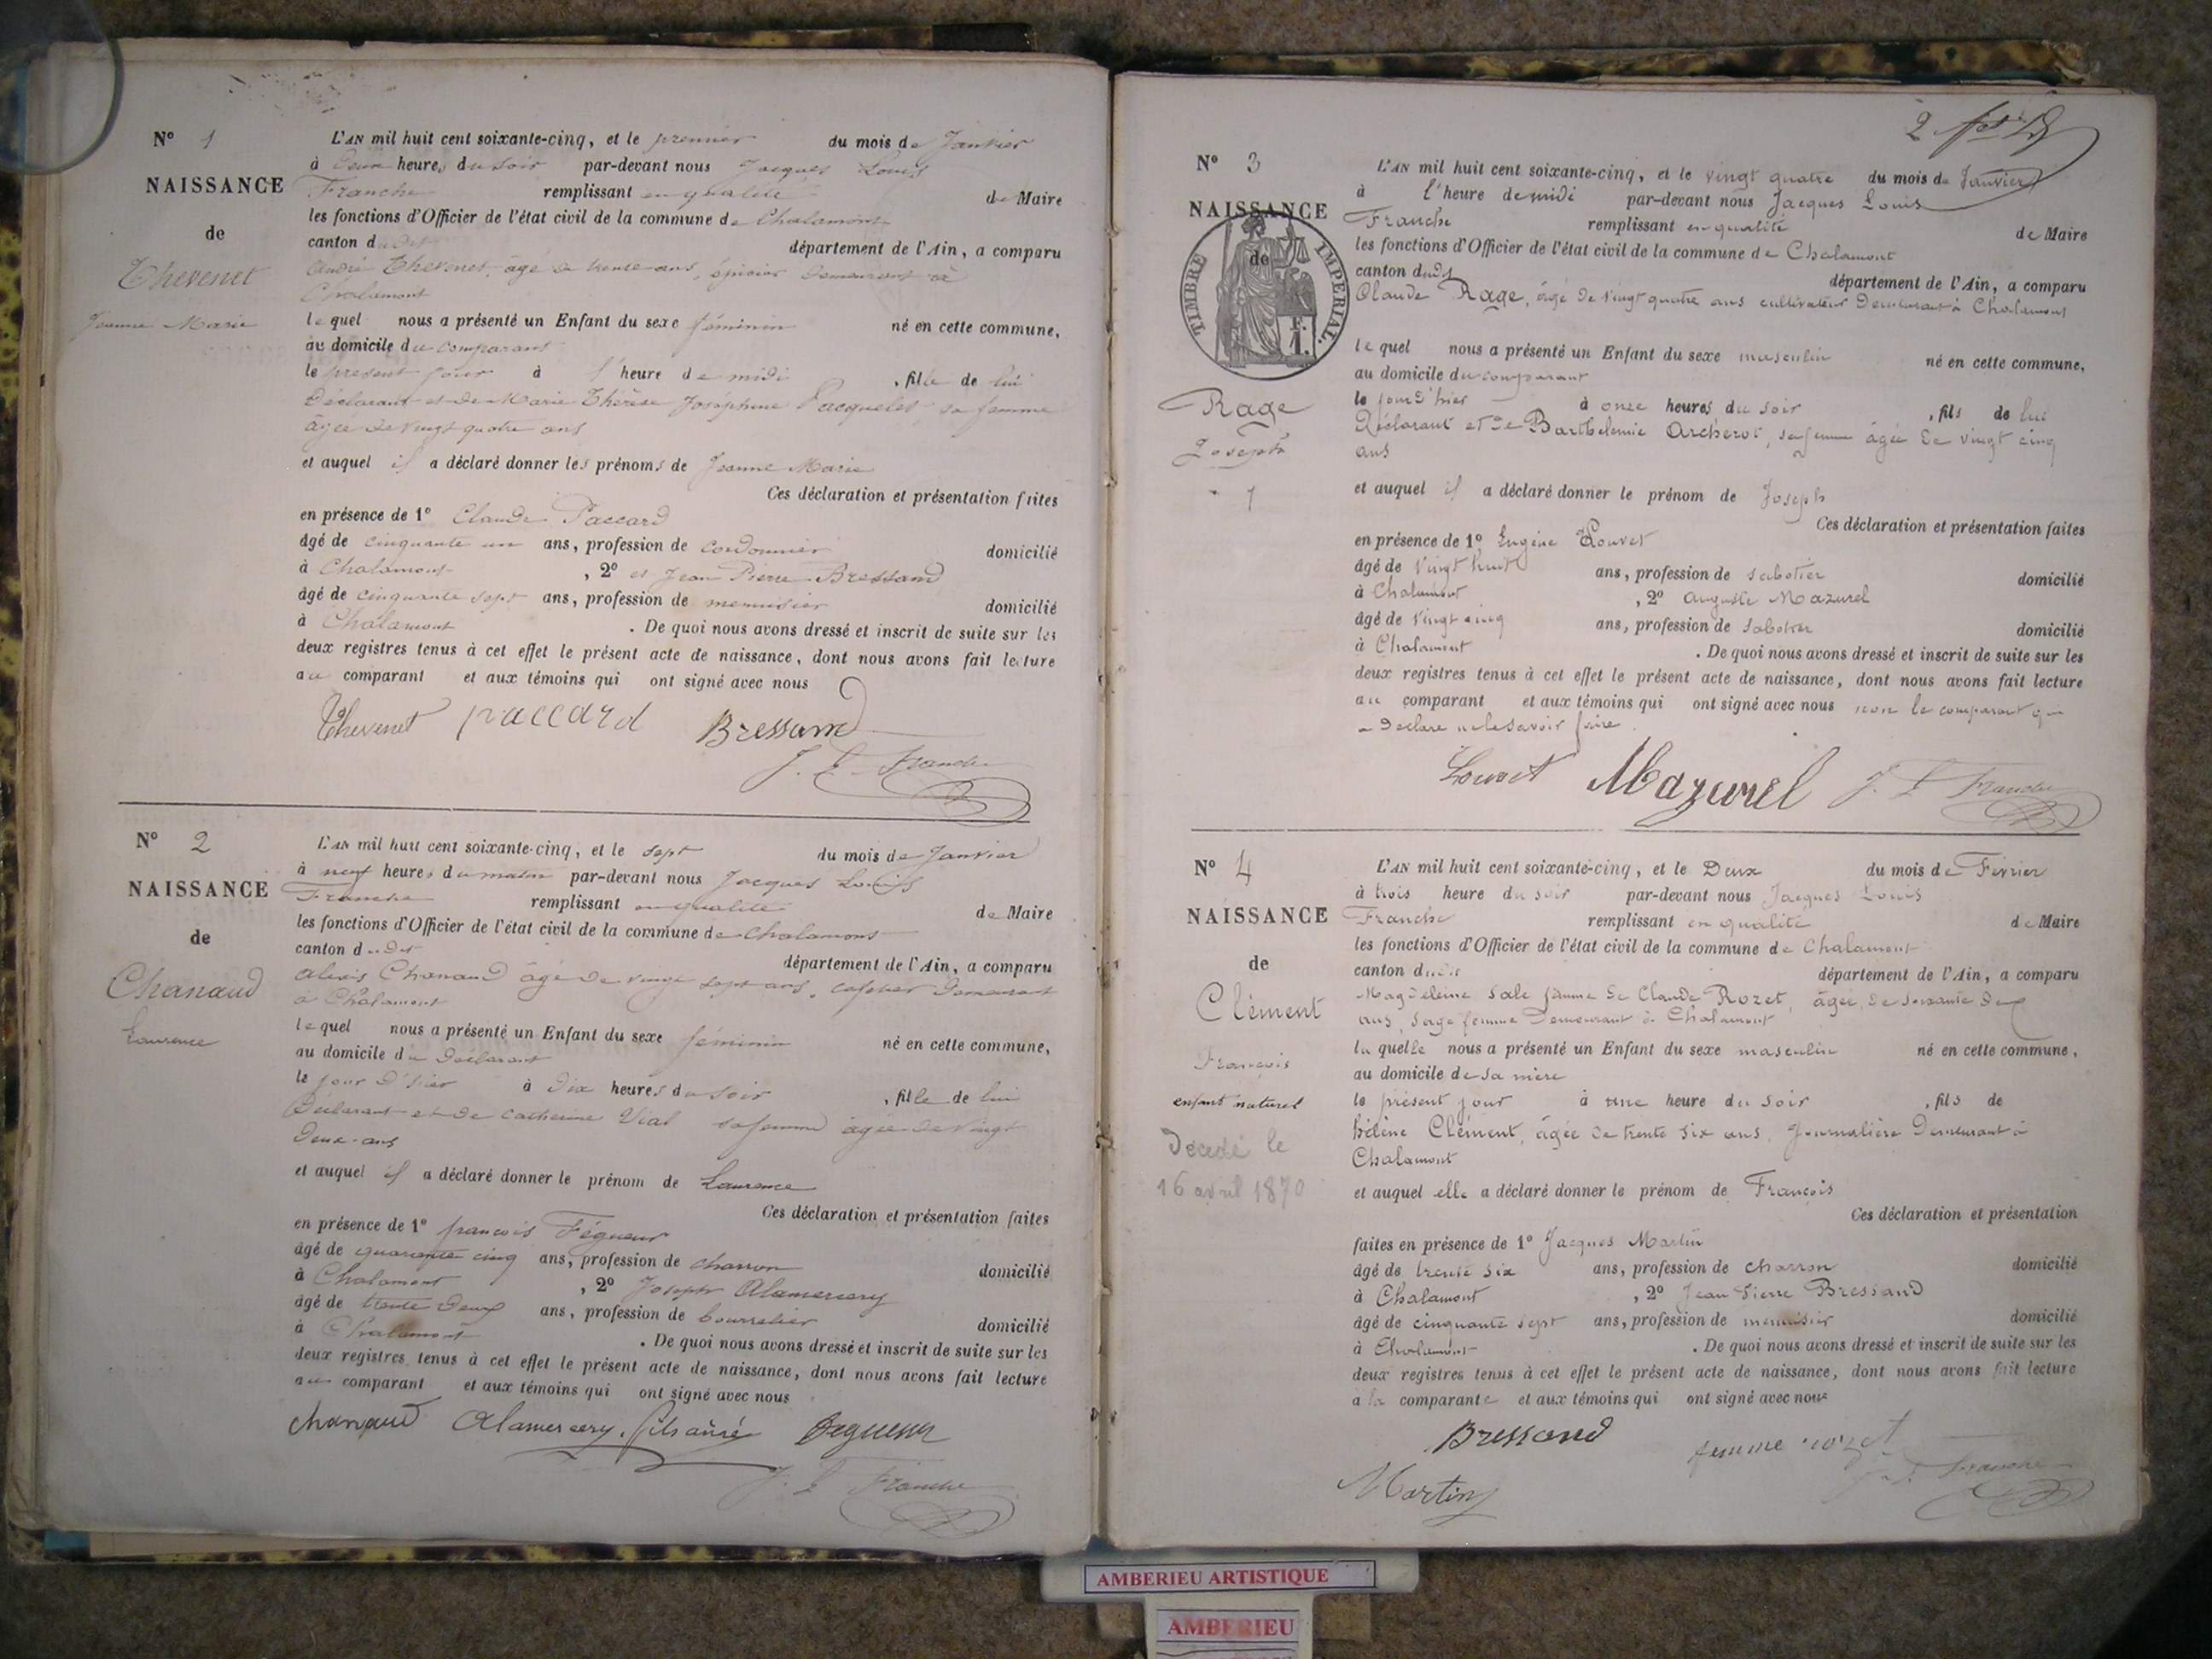 N° 1
NAISSANCE
de
Thevenet
Jeanne Marie
L'AN mil huit cent soixante-cinq, et le premier du mois de Janvier
à deux heures du soir par-devant nous Jacques Louis
Franche remplissant en qualité de Maire
les fonctions d'Officier de l'état civil de la commune de Chalamont
canton dudit département de l'Ain, a comparu
André Thevenet, âgé de trente ans, épicier demeurant à
Chalamont
lequel nous a présenté un Enfant du sexe féminin né en cette commune,
au domicile du comparant
le présent jour à l'heure de midi , fille de lui
Déclarant et de Marie Thérèse Joséphine Pacquelet sa femme
âgée de vingt quatre ans
et auquel il a déclaré donner les prénoms de Jeanne Marie
Ces déclaration et présentation faites
en présence de 1° Claude Paccard
âgé de cinquante un ans, profession de cordonnier domicilié
à Chalamont , 2° et Jean Pierre Bressand
âgé de cinquante sept ans, profession de menuisier domicilié
à Chalamont . De quoi nous avons dressé et inscrit de suite sur les
deux registres tenus à cet effet le présent acte de naissance, dont nous avons fait lecture
au comparant et aux témoins qui ont signé avec nous
Thevenet paccard Bressand
J. L Franche
N° 2
NAISSANCE
de
Chanaud
Laurence
L'AN mil huit cent soixante-cinq, et le sept du mois de Janvier
à neuf heures du matin par-devant nous Jacques Louis
Franche remplissant en qualité de Maire
les fonctions d'Officier de l'état civil de la commune de Chalamont
canton dudit département de l'Ain, a comparu
Alexis Chanaud âgé de vingt sept ans, demeurant
à Chalamont
lequel nous a présenté un Enfant du sexe féminin né en cette commune,
au domicile du Déclarant
le jour d'hier à dix heures du soir , fille de lui
Déclarant et de Catherine Vial sa femme âgée de vingt
Deux ans
et auquel il a déclaré donner le prénom de Laurence
Ces déclaration et présentation faites
en présence de 1° françois Fégueur
âgé de quarante cinq ans, profession de charron domicilié
à Chalamont , 2° Joseph Alamercery
âgé de trente deux ans, profession de bourrelier domicilié
à Chalamont . De quoi nous avons dressé et inscrit de suite sur les
deux registres tenus à cet effet le présent acte de naissance, dont nous avons fait lecture
au comparant et aux témoins qui ont signé avec nous
chanaud Alamercery, fils aîné fegueur
J. L Franche
2
N° 3
NAISSANCE
de
TIMBRE IMPERIAL.
Rage
Joseph
1
L'AN mil huit cent soixante-cinq, et le vingt quatre du mois de Janvier
à l'heure de midi par-devant nous Jacques Louis
Franche remplissant en qualité de Maire
les fonctions d'Officier de l'état civil de la commune de Chalamont
canton dudit département de l'Ain, a comparu
Claude Rage, âgé de vingt quatre ans cultivateur demeurant à Chalamont
lequel nous a présenté un Enfant du sexe masculin né en cette commune,
au domicile du comparant
le jour d'hier à onze heures du soir , fils de lui
Déclarant et de Barthelemie Archerot, sa femme âgée de vingt cinq
ans
et auquel il a déclaré donner le prénom de Joseph
Ces déclaration et présentation faites
en présence de 1° Eugène Louvet
âgé de vingt huit ans, profession de sabotier domicilié
à Chalamont , 2° Auguste Mazurel
âgé de vingt cinq ans, profession de sabotier domicilié
à Chalamont . De quoi nous avons dressé et inscrit de suite sur les
deux registres tenus à cet effet le présent acte de naissance, dont nous avons fait lecture
au comparant et aux témoins qui ont signé avec nous non le comparant qui
a déclaré ne le savoir faire
Louvet Mazurel J. L Franche
N° 4
NAISSANCE
de
Clément
François
enfant naturel
Décédé le
16 avril 1870
L'AN mil huit cent soixante-cinq, et le Deux du mois de Février
à trois heure du soir par-devant nous Jacques Louis
Franche remplissant en qualité de Maire
les fonctions d'Officier de l'état civil de la commune de Chalamont
canton dudit département de l'Ain, a comparu
Magdeleine Sale femme de Claude Rozet, âgée de soixante deux
ans, sage femme Demeurant à Chalamont
laquelle nous a présenté un Enfant du sexe masculin né en cette commune,
au domicile de sa mère
le présent jour à une heure du soir , fils de
hélène Clément, âgée de trente six ans, Journalière Demeurant à
Chalamont
et auquel elle a déclaré donner le prénom de François
Ces déclaration et présentation
faites en présence de 1° Jacques Martin
âgé de trente six ans, profession de charron domicilié
à Chalamont , 2° Jean Pierre Bressand
âgé de cinquante sept ans, profession de menuisier domicilié
à Chalamont . De quoi nous avons dressé et inscrit de suite sur les
deux registres tenus à cet effet le présent acte de naissance, dont nous avons fait lecture
à la comparante et aux témoins qui ont signé avec nous
Bressand femme rozet
Martin J. L. Franche
AMBERIEU ARTISTIQUE
AMBERIEU